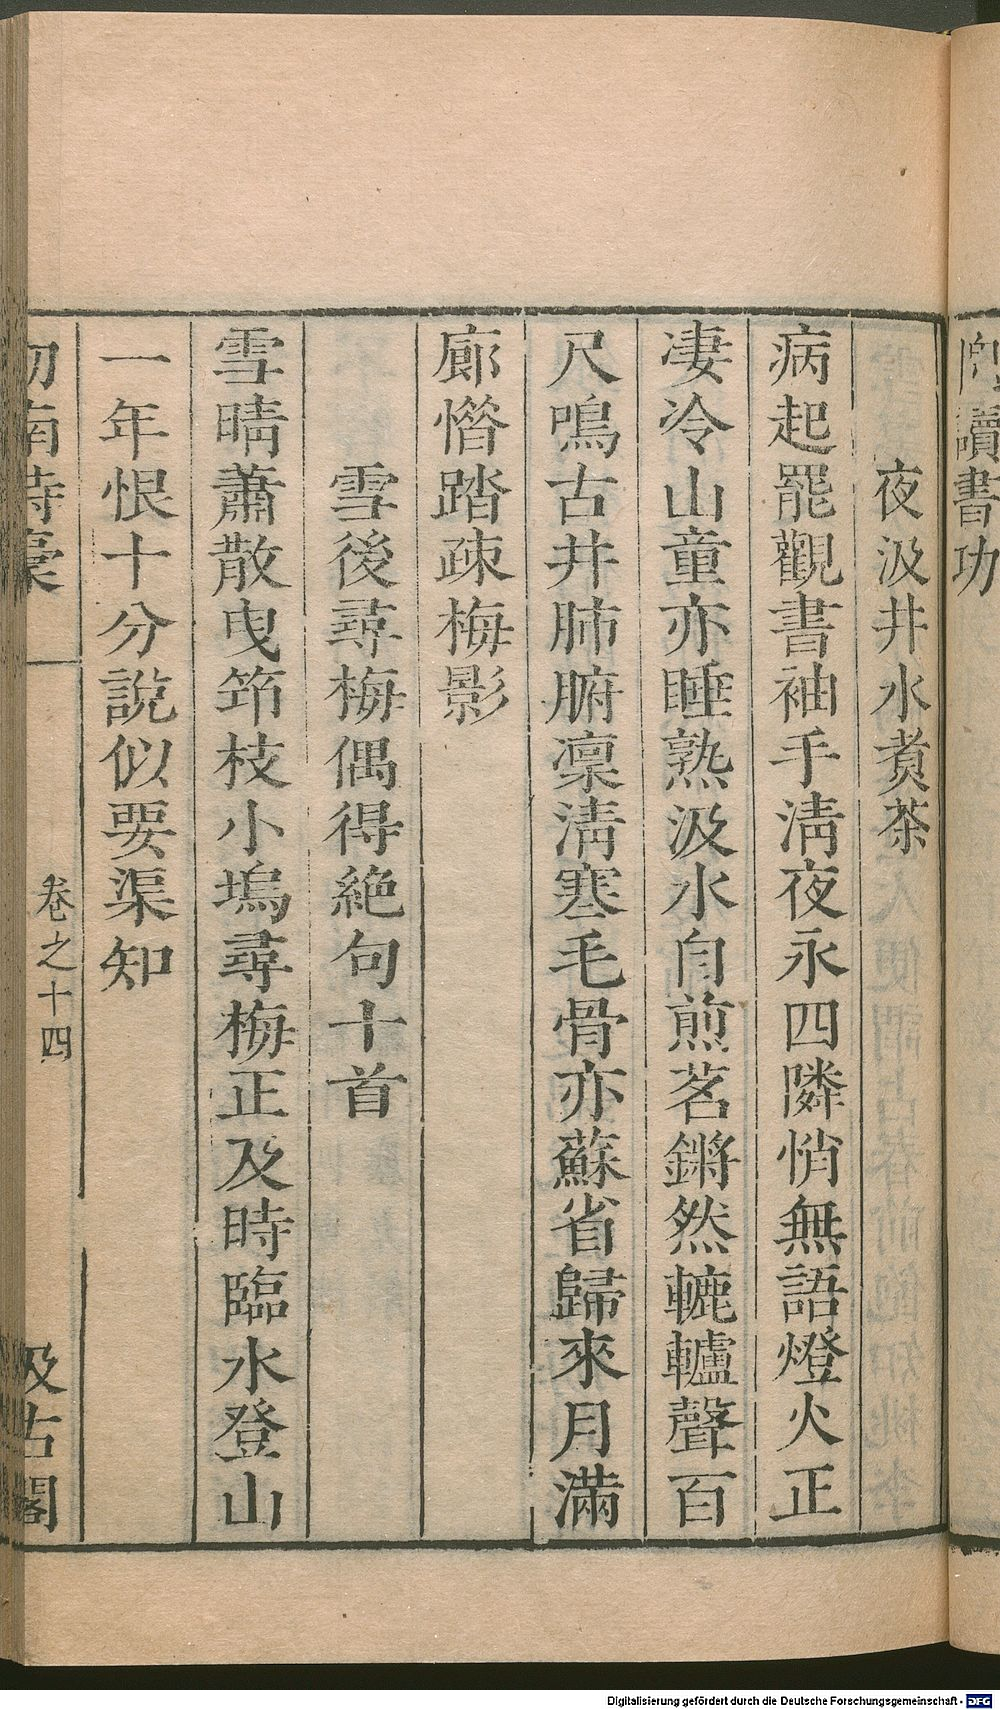 讀書功
夜汲井水煑茶
病起罷觀書袖手清夜永四隣悄無語燈火正
凄冷山童亦睡熟汲水自煎茗鏘然轆轤聲百
尺鳴古井肺腑凜清寒毛骨亦蘇省歸來月滿
廊惜踏疎梅影
雪後尋梅偶得絶句十首
雪晴蕭散曳笻枝小塢尋梅正及時臨水登山
一年恨十分說似要渠知
劒南詩稾
卷之十四
汲古閣
Digitalisierung gefördert durch die Deutsche Forschungsgemeinschaft - DFG